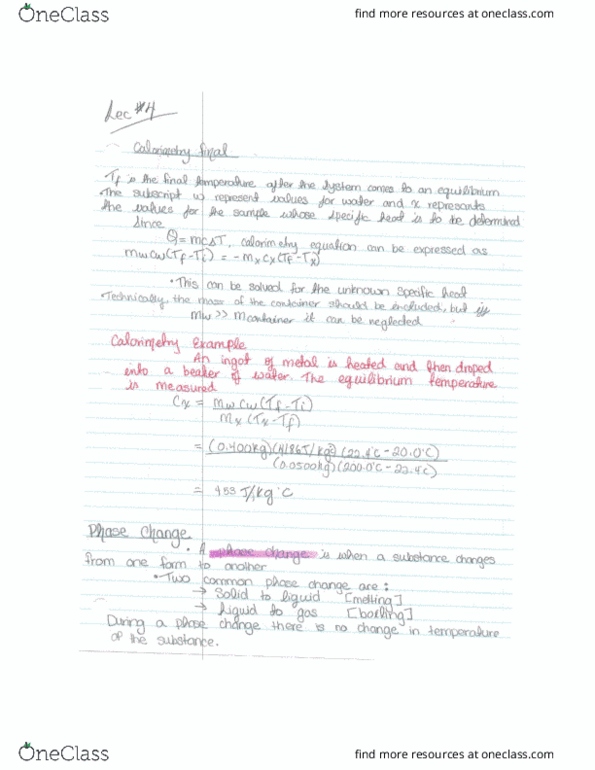 OneClass
find more resources at oneclass.com
Lec #4
Calorimetry final
Tf is the final temperature after the system comes to an equilibrium
The subscript w represent values for water and x represants
the values for the sample whose specific heat is to be determined
Since
Q = mcΔT, calorimetry equation can be expressed as
mwcw(Tf-Ti) = -mxcx(Tf-Tx)
• This can be solved for the unknown specific heat
• Technically, the mass of the container should be included, but if
mw >> mcontainer it can be neglected.
Calorimetry Example
An ingot of metal is heated and then droped
into a beaker of water. The equilibrium temperature
is measured
Cx = mwcw(Tf-Ti)
mx(Tx-Tf)
= (0.400kg)(4186J/kg°)(22.4°C-20.0°C)
(0.0500kg)(200.0°C-22.4°C)
= 453 J/kg°C
Phase Change
• A phase change is when a substance changes
from one form to another
• Two common phase change are:
→ Solid to liquid [melting]
→ Liquid to gas [boiling]
During a phase change there is no change in temperature
of the substance.
OneClass
find more resources at oneclass.com